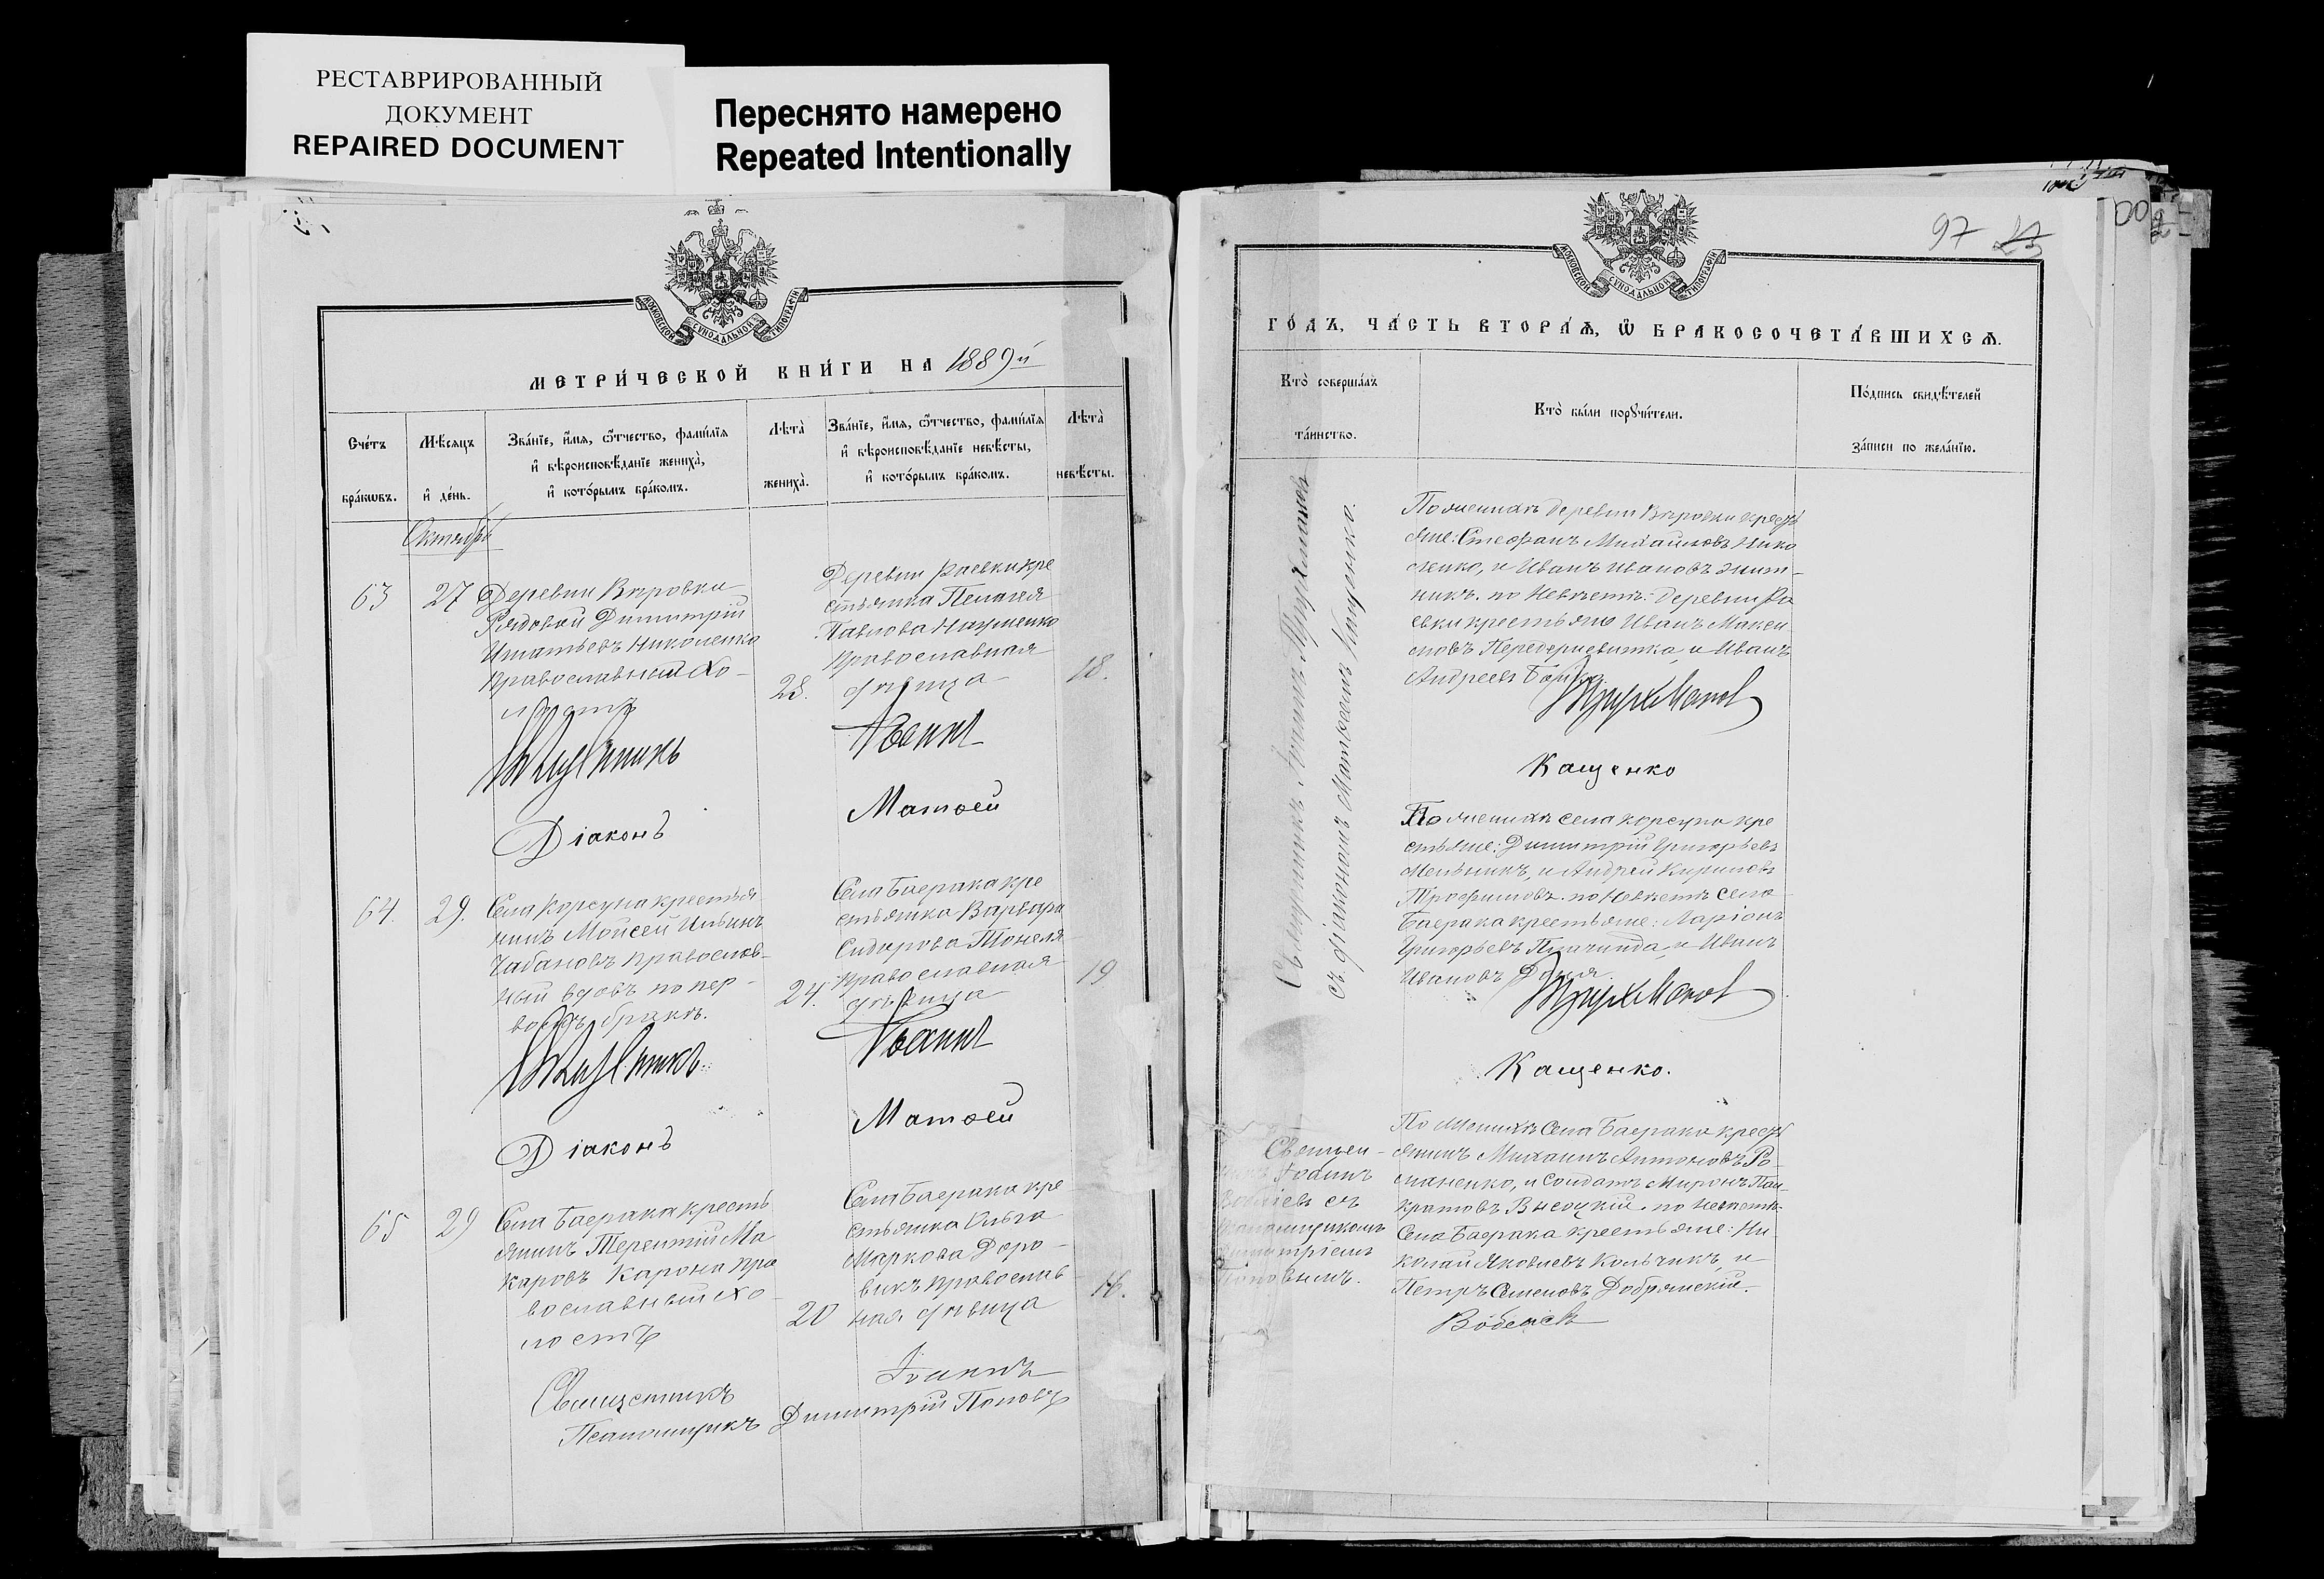 РЕСТАВРИРОВАННЫЙ
ДОКУМЕНТ
REPAIRED DOCUMENT
Переснято намерено
Repeated Intentionally
МОСКОВСКОЙ СѴНОДАЛЬНОЙ ТИПОГРАФІИ
МЕТРИ́ЧЕСКОЙ КНИ́ГИ НА 1889й
Сче́тъ
бра́ковъ.
Мѣ́сяцъ
и҆ де́нь.
Зва́нїе, и҆́мѧ, ѻ҆́тчество, фами́лїѧ
и҆ вѣроисповѣ́данїе жениха̀,
и҆ кото́рымъ бра́комъ.
Лѣта̀
жениха̀.
Зва́нїе, и҆́мѧ, ѻ҆́тчество, фами́лїѧ
и҆ вѣроисповѣ́данїе невѣ́сты,
и҆ кото́рымъ бра́комъ.
Лѣта̀
невѣ́сты.
Октябрь
63
27
Деревни Вѣровки
Рядовой Димитрій
Игнатьевъ Николенко
православный хо-
лостъ
28.
Деревни Раевки кре
стьянка Пелагея
Павлова Науменко
православная
дѣвица
18.
Іоаннъ
Діаконъ
Матѳей
64.
29.
Села Корсуна крестья
нинъ Моисей Ильинъ
Чабановъ православ-
ный вдовъ по пер-
вомъ бракѣ.
24.
Села Баерака кре
стьянка Варвара
Сидорова Тонеля
православная
дѣвица
19
Іоаннъ
Діаконъ
Матѳей
65
29
Села Баерака кресть
янинъ Терентій Ма
каровъ Карона пра
вославный хо
лостъ
20
Села Баерака кре
стьянка Ольга
Маркова Доро-
викъ православ
ная дѣвица
16.
Священникъ
Іоаннъ
Псаломщикъ Димитрій Поповъ
97 23
МОСКОВСКОЙ СѴНОДАЛЬНОЙ ТИПОГРАФІИ
ГО́ДЪ, ЧА́СТЬ ВТОРА́Ѧ, Ѽ БРАКОСОЧЕТА́ВШИХСѦ.
Кто̀ соверша́лъ
та́инство.
Кто̀ бы́ли порꙋчи́тели.
По́дпись свидѣ́телей
за́писи по жела́нїю.
съ діакономъ Матѳеемъ Кащенко.
По женихѣ деревни Вѣровки кресть
яне: Стефанъ Михайловъ Нико
ленко, и Иванъ Ивановъ
никъ. по Невѣстѣ: деревни Ра
евки крестьяне Иванъ Макси
мовъ и Иванъ
Андреевъ
Трухмановъ
Кащенко
По женихѣ села Корсуна кре
стьяне: Димитрій Григорьевъ
Мельникъ, и Андрей Кириловъ
Трофимовъ. по Невѣстѣ села
Баерака крестьяне: Ларіонъ
Григорьевъ и Иванъ
Ивановъ
Трухмановъ
Кащенко.
Священ-
Іоаннъ
съ
Псаломщикомъ
Димитріемъ
Поповымъ.
По Женихѣ Села Баерака кресть
янинъ Михаилъ Антоновъ Ро-
маненко, и Солдатъ Миронъ Пан-
кратовъ Высоцкій. по невѣстѣ
Села Баерака крестьяне: Ни
колай Яковлевъ Кольчикъ, и
Петръ Семеновъ Добрянскій.